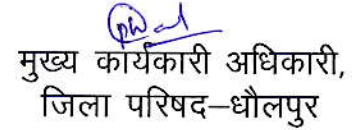 मुख्य कार्यकारी अधिकारी,
जिला परिषद–धौलपुर